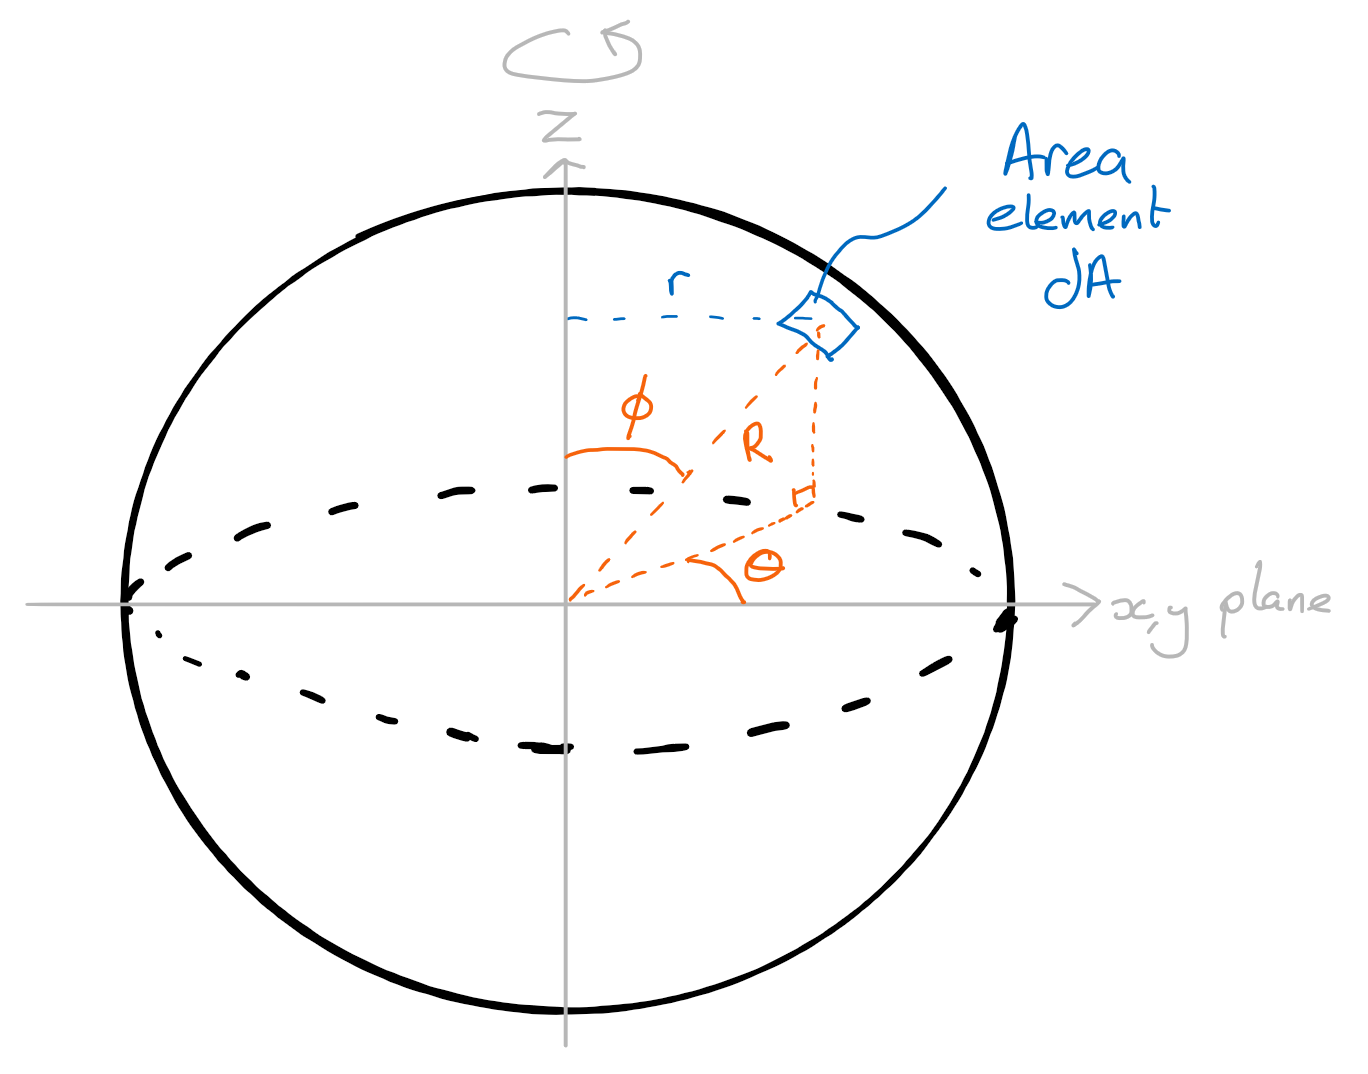 z
Area
element
dA
r
ϕ
R
θ
x,y plane